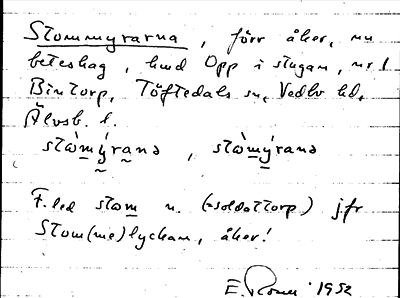 Stommyrarna, förr åker, nu
beteshag, hmd Opp i stugan, nr 1
Bintorp, Töftedals sn, Vedbo hd,
Älvsb. l.
stòmýrana, stòmýrana
F. led stom n. (=soldattorp) jfr
Stom(me)lyckan, åker!
E 1952